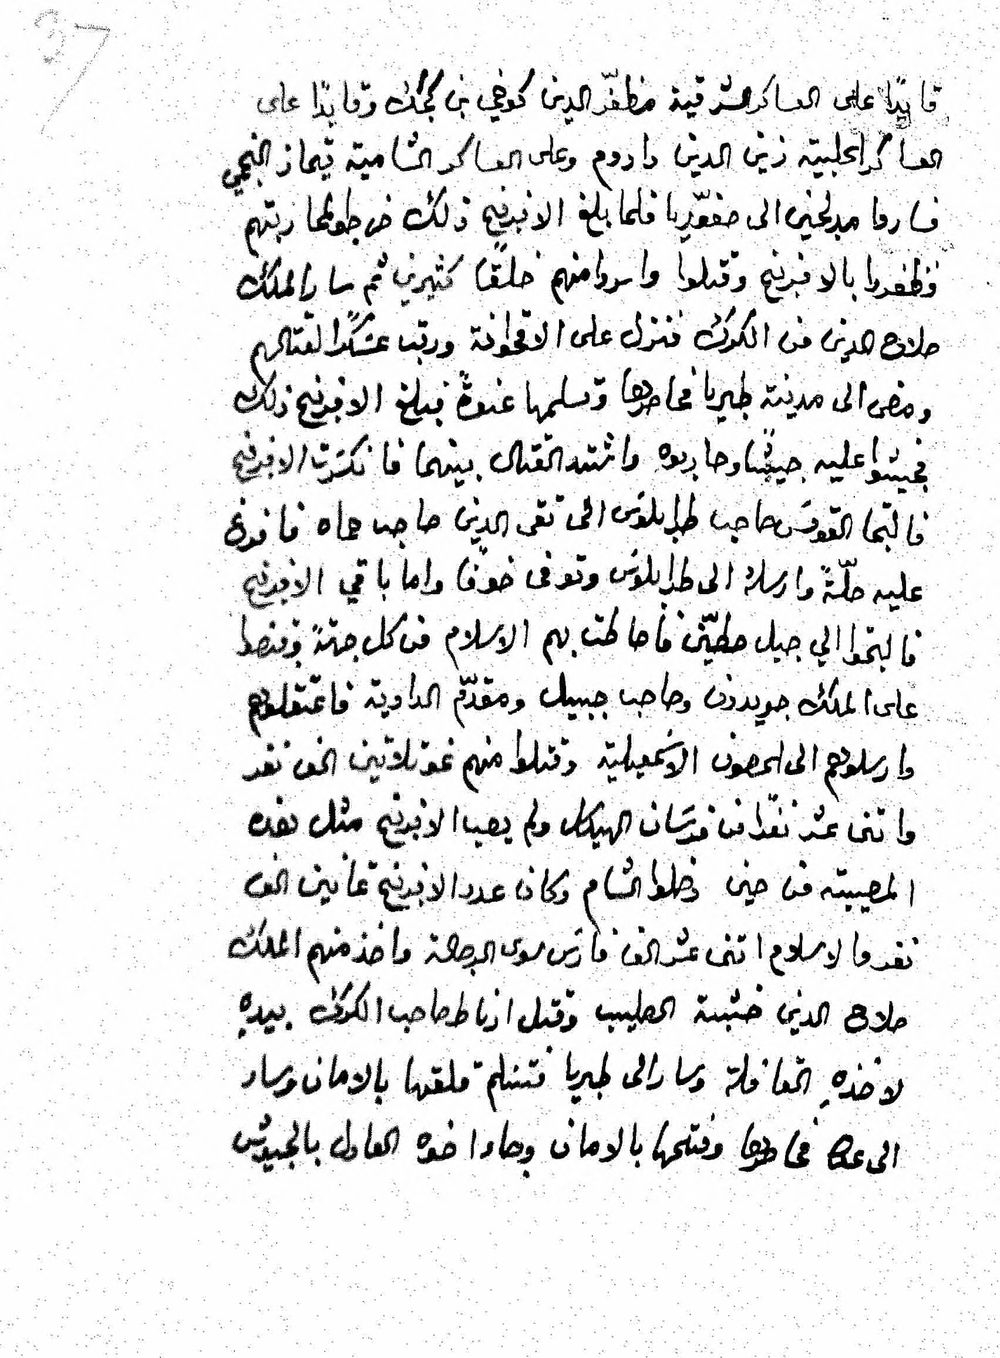 37
قايدًا على العساكر الشرقية مظفّر الدين كوفي بن كجك وقايدًا على
العساكر الحلبية زين الدين داروم وعلى العساكر الشامية قيماز النجمي
فساروا مدلجين الى صفوّريا فلما بلغ الافرنج ذلك خرجوا لمحاربتهم
فظفروا بالافرنج وقتلوا واسروا منهم خلقًا كثيرين ثم سار الملك
صلاح الدين من الكرك فنزل على الاقحوانة ورتب عسكرًا لقتالهم
ومضى الى مدينة طبريا فحاصرها وتسلمها عنوةً فبلغ الافرنج ذلك
فجيشوا عليه جيشًا وحاربوه واشتد القتال بينهما فانكسرت الافرنج
فالتجا القومس صاحب طرابلوس الى تقى الدين صاحب حماه فافرغ
عليه حلّةً وارسله الى طرابلوس وتوفى خوفًا واما باقي الافرنج
فالتجوا الي جبل حطيّن فأحاطت بهم الاسلام من كل جهةً وقبضوا
على الملك جويدون وصاحب جبيل ومقدّم الداوية فاعتقلوهم
وارسلوهم الى الحصون الاسمعيلية وقتلوا منهم نحو ثلاثين الف نفر
واتنى عشر نفرًا من فرسان الهيكل ولم يصب الافرنج مثل هذه
المصيبة من حين دخلوا الشام وكان عدد الافرنج ثمانين الف
نفر والاسلام اتنى عشر الف فارس سوى الرجالة واخذ منهم الملك
صلاح الدين خشبة الصليب وقتل ارناط صاحب الكرك بيدهِ
لاخذهِ القافلة وسار الى طبريا فتسلم قلعتها بالامان وسار
الى عكا فحاصرها وفتحها بالامان وجاء اخوه العادل بالجيوش